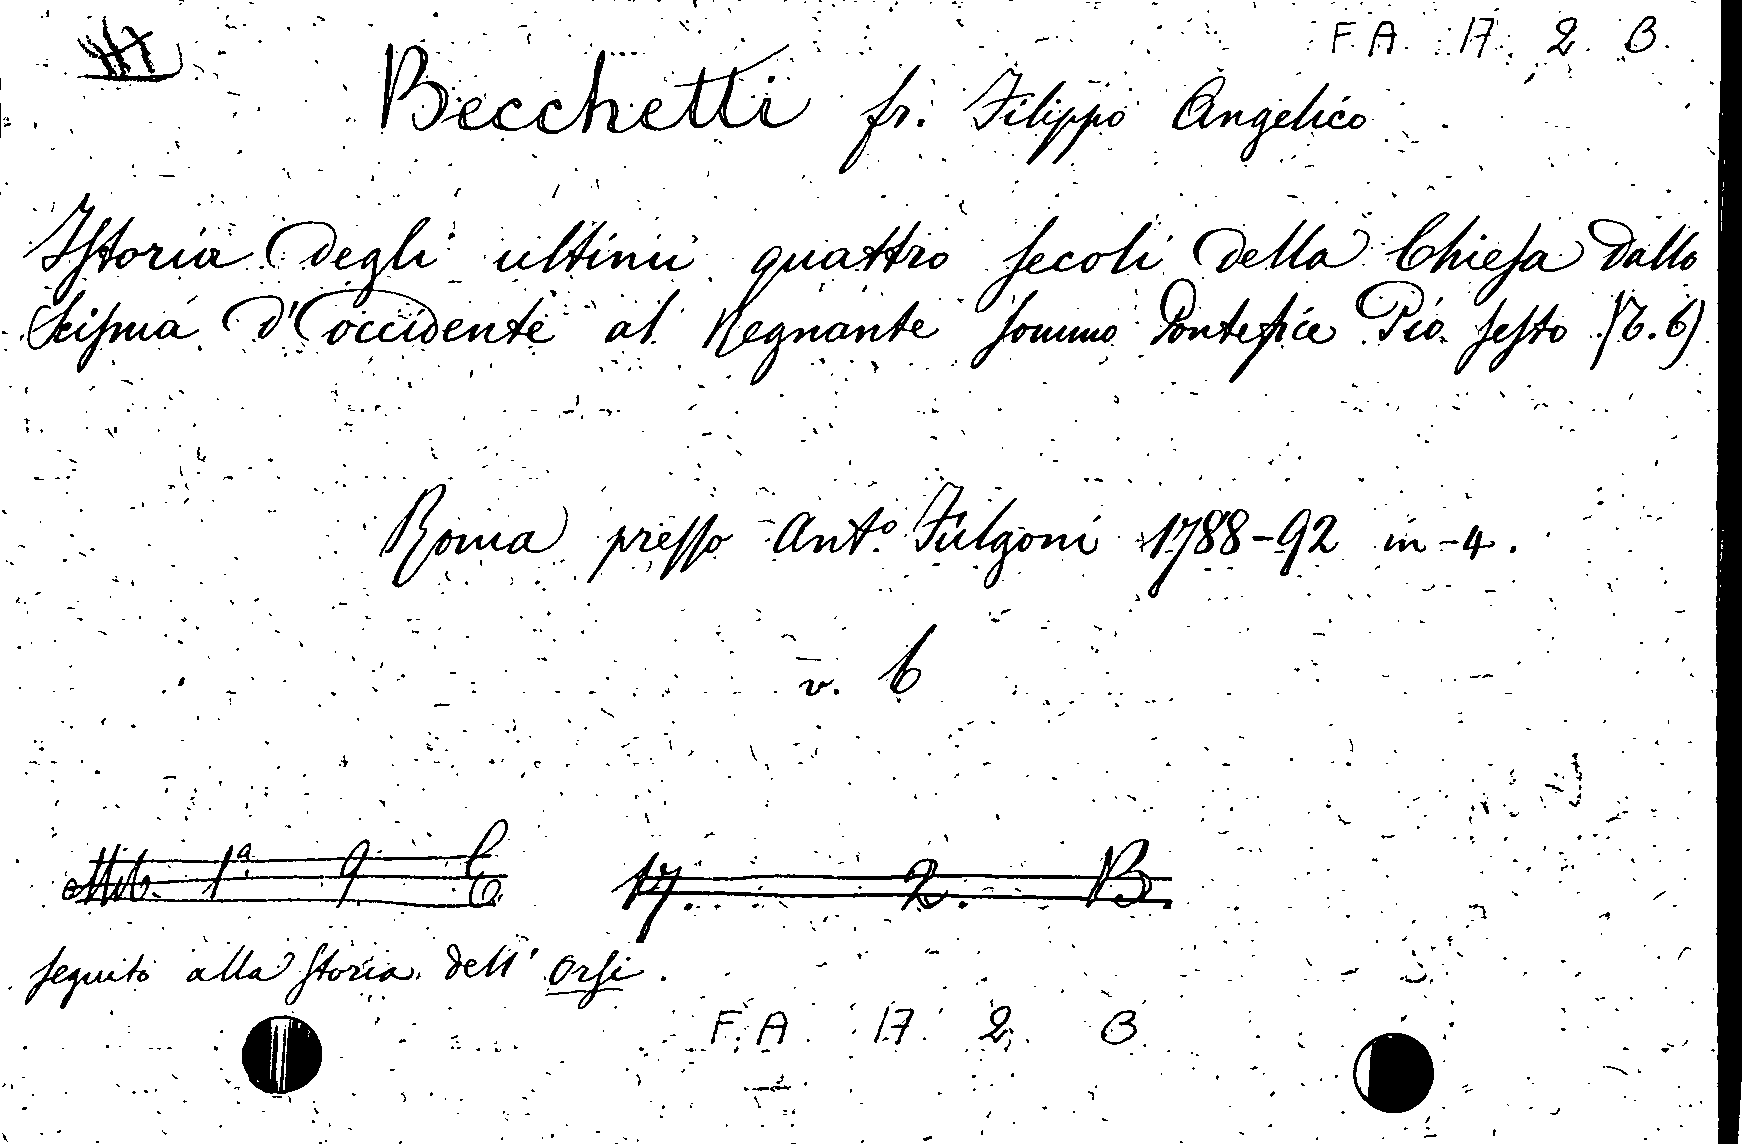 F. A. 17. 2. B.
Becchetti fr. Filippo Angelico
Istoria degli ultimi quattro secoli della Chiesa dallo
Scisma d'occidente al Regnante sommo Pontefice Pio sesto (T. 6)
Roma presso Ant.º Fulgoni 1788-92 in-4.
v. 6
1ª 9 E 17. 2. B.
seguito alla storia dell' Orsi.
F. A. 17. 2. B